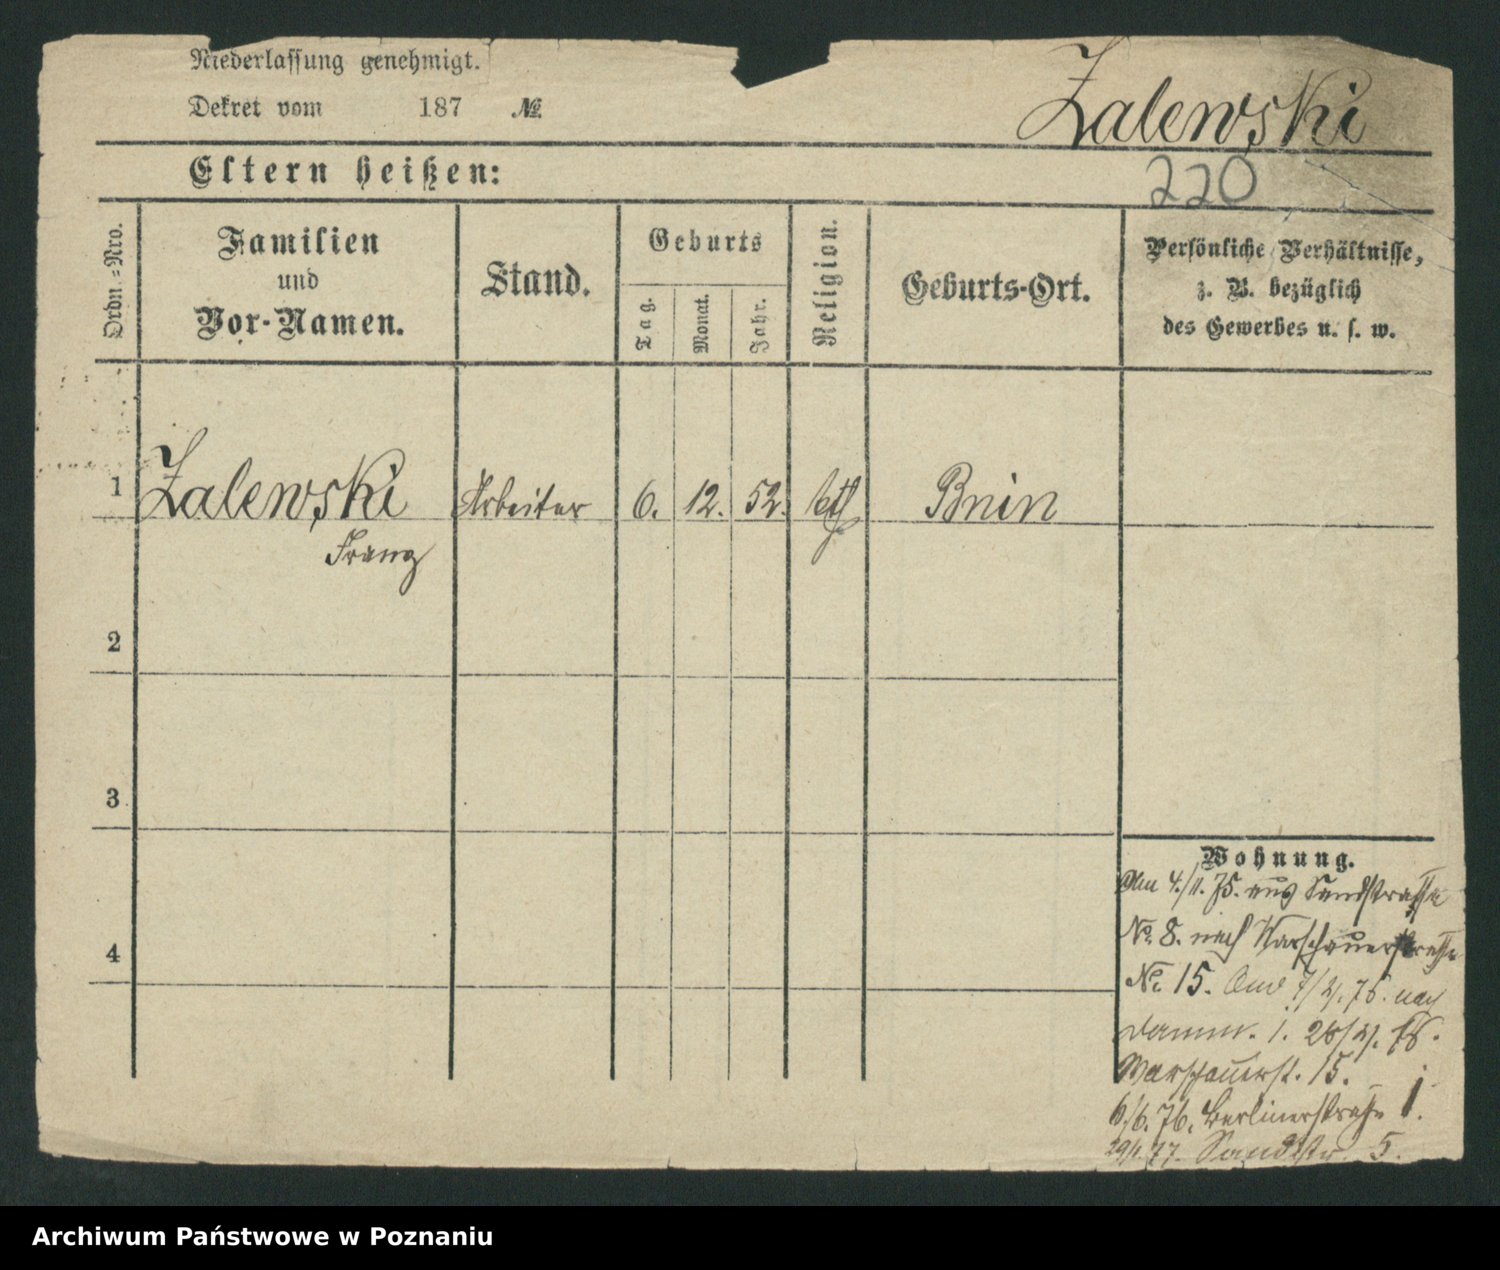 Niederlassung genehmigt.
Dekret vom 187 №
Zalewski
Eltern heißen:
220
Ordn.-Nro.
Familien
und
Vor-Namen.
Stand.
Geburts
Tag.
Monat.
Jahr.
Religion.
Geburts-Ort.
Persönliche Verhältnisse,
z. B. bezüglich
des Gewerbes u. s. w.
1 Zalewski Arbeiter 6. 12. 52. kth Bnin
Franz
2
3
4
Wohnung.
Am 4./11. 75. aus Sandstrasse
№ 8. nach Warschauerstrasse
№ 15. nach
Damm. 1.
Warschauerst. 15.
6/6. 76. Berlinerstrasse 1.
29/1. 77. Sandstr. 5.
Archiwum Państwowe w Poznaniu